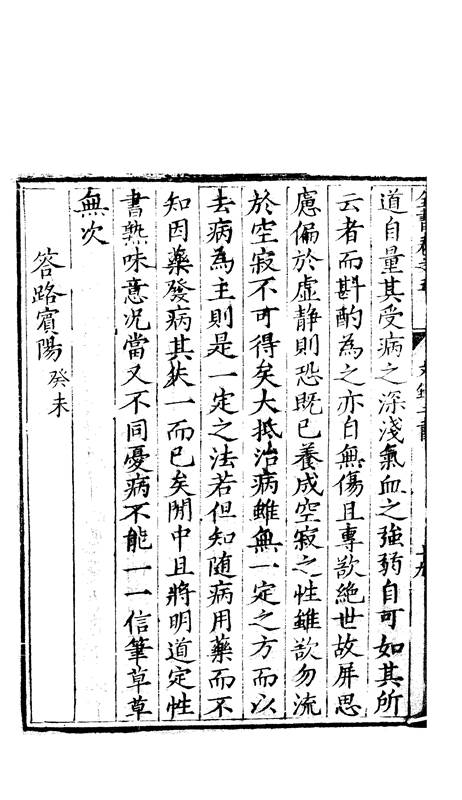 道自量其受病之深淺氣血之強弱自可如其所
云者而斟酌為之亦自無傷且專欲絶世故屏思
慮偏於虛静則恐既已養成空寂之性雖欲勿流
於空寂不可得矣大抵治病雖無一定之方而以
去病為主則是一定之法若但知随病用藥而不
知因藥發病其失一而已矣閒中且將明道定性
書熟味意况當又不同憂病不能一一信筆草草
無次
答路賓陽癸未